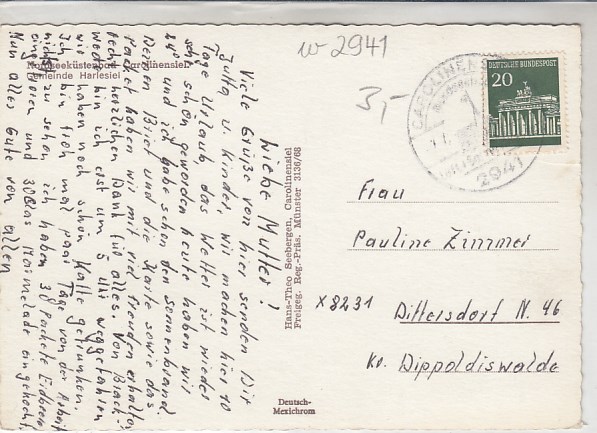 w 2941
3,-
Nordseeküstenbad Carolinensiel
Gemeinde Harlesiel
Liebe Mutter!
Viele Grüße von hier senden Dir
Jutta u. Kinder, wir machen hier 10
Tage Urlaub das Wetter ist wieder
schön geworden heute haben wir
28° und ich habe schon den Sonnenbrand
Deinen Brief und die Karte sowie das
Packet haben wir mit viel freuden erhalten
recht herzlichen Dank für alles. Von Brach
weck bin ich erst um 5 Uhr weggefahren
wir haben noch schön Kaffe getrunken.
Ich bin froh mal paar Tage von der Arbeit
nichts zu sehen ich haben 38 Packete Erdbeeren
eingefroren und 30 Glas Marmelade eingekocht.
Nun alles Gute von allen
Hans-Theo Seebergen, Carolinensiel
Freigeg. Reg.-Präs. Münster 3136/68
Deutsch-
Mexichrom
CAROLINENSIEL
2941
DEUTSCHE BUNDESPOST
20
Frau
Pauline Zimmer
X 8231 Dittersdorf N. 46
Kr. Dippoldiswalde